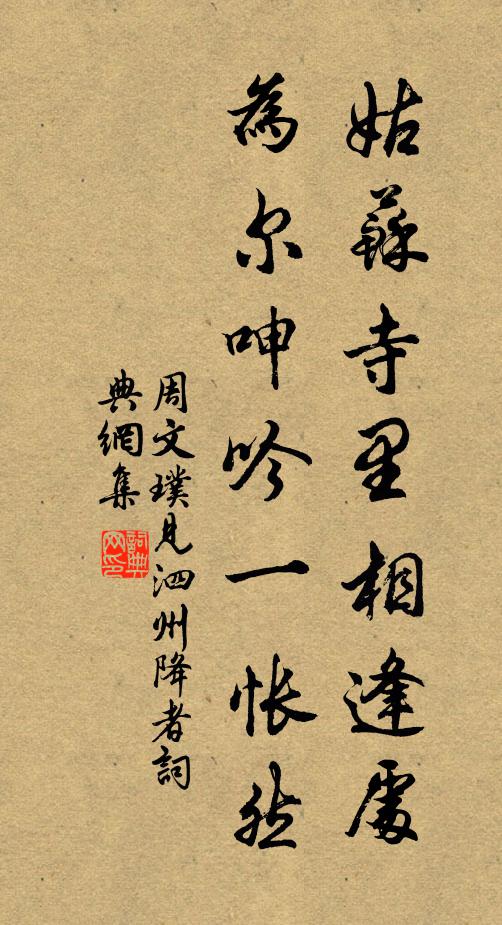 姑蘇寺里相逢處
為尔呻吟一悵然
周文璞見泗州降者詞
典網集
詞典网印